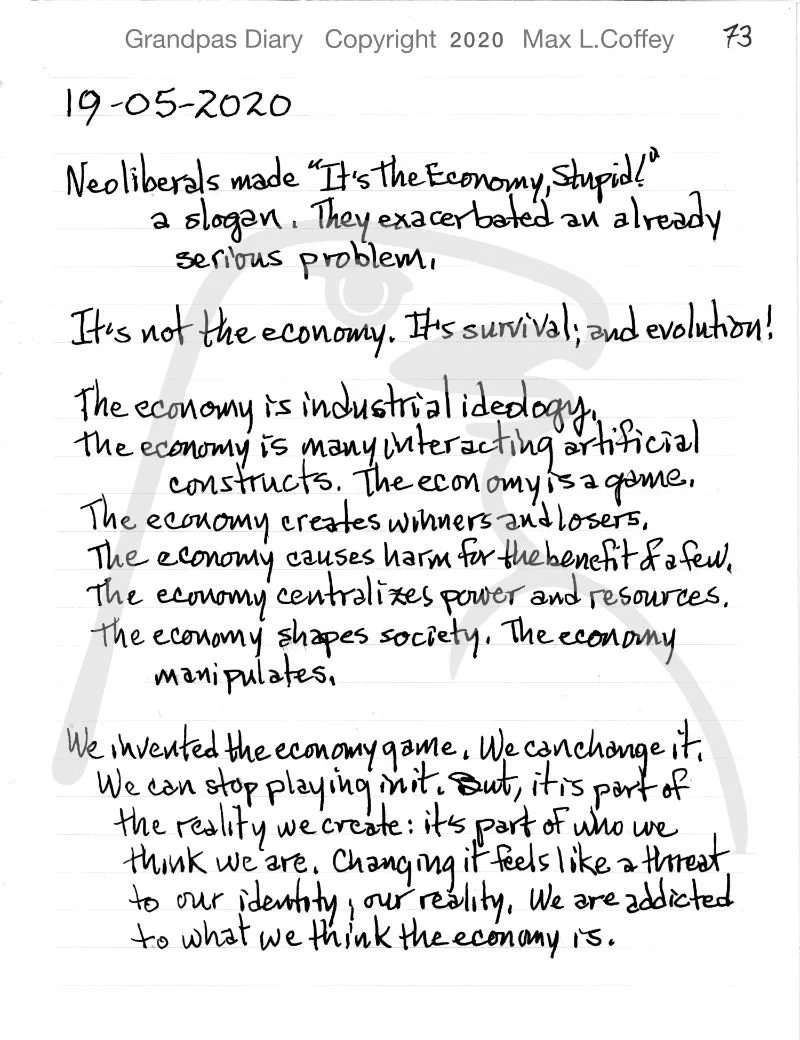 Grandpas Diary Copyright 2020 Max L.Coffey 73
19-05-2020
Neoliberals made "It's the Economy, Stupid!"
a slogan. They exacerbated an already
serious problem.
It's not the economy. It's survival; and evolution!
The economy is industrial ideology.
The economy is many interacting artificial
constructs. The economy is a game.
The economy creates winners and losers.
The economy causes harm for the benefit of a few.
The economy centralizes power and resources.
The economy shapes society. The economy
manipulates.
We invented the economy game. We can change it.
We can stop playing in it. But, it is part of
the reality we create: it's part of who we
think we are. Changing it feels like a threat
to our identity, our reality. We are addicted
to what we think the economy is.